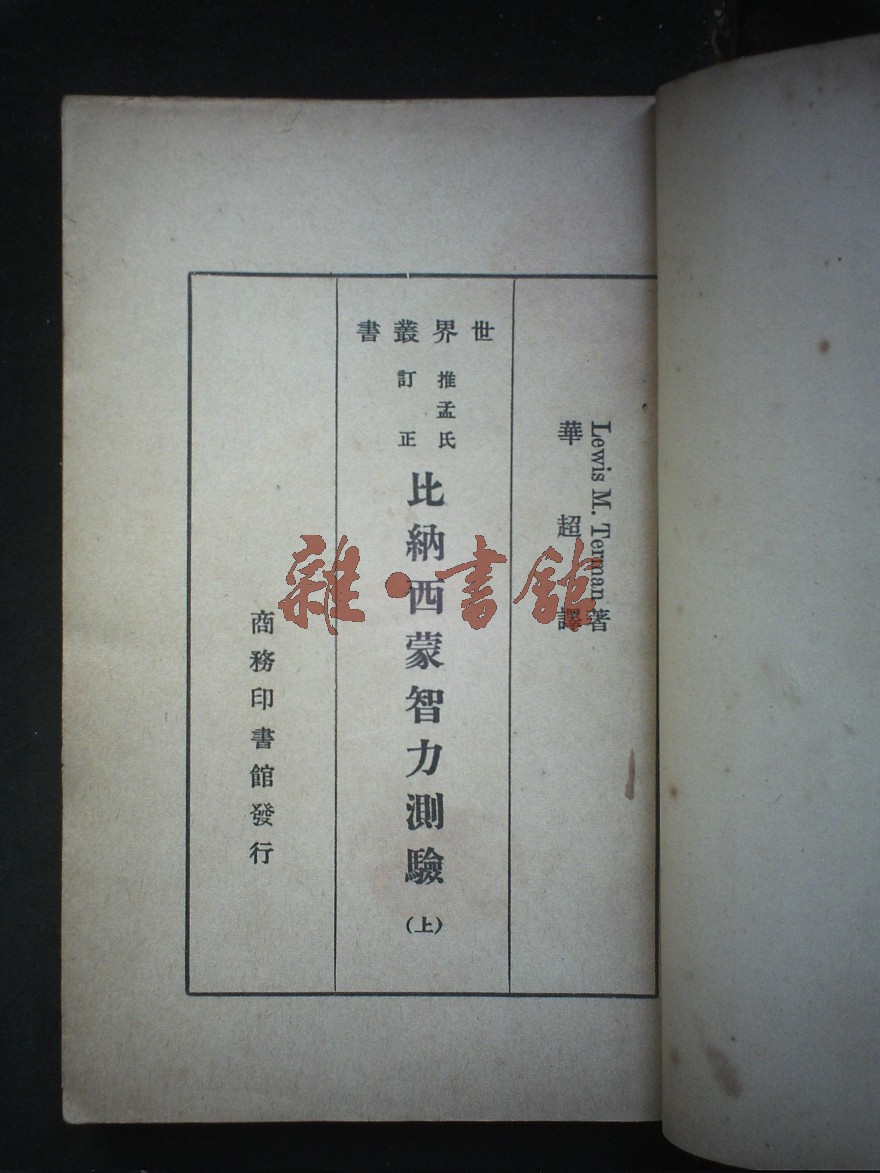 Lewis M. Terman 著
華超譯
世界叢書
推孟氏
訂正
比納西蒙智力測驗
(上)
商務印書館發行
雜·書館